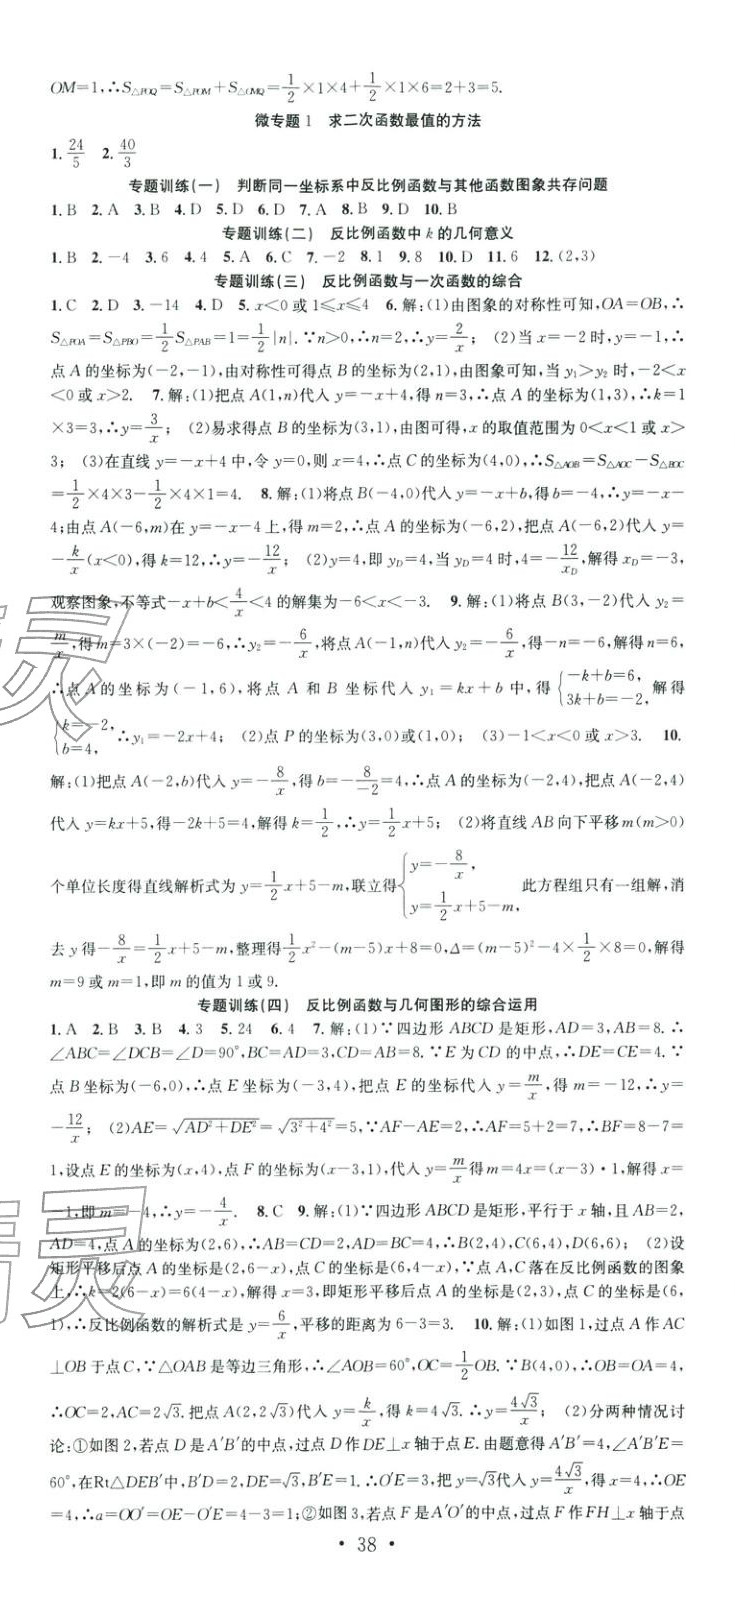 OM=1,∴S△POQ=S△POM+S△OMQ=1/2×1×4+1/2×1×6=2+3=5.
微专题1 求二次函数最值的方法
1. 24/5 2. 40/3
专题训练(一) 判断同一坐标系中反比例函数与其他函数图象共存问题
1. B 2. A 3. B 4. D 5. D 6. D 7. A 8. B 9. D 10. B
专题训练(二) 反比例函数中 k 的几何意义
1. B 2. -4 3. 6 4. 4 5. A 6. C 7. -2 8. 1 9. 8 10. D 11. 6 12. (2,3)
专题训练(三) 反比例函数与一次函数的综合
1. C 2. D 3. -14 4. D 5. x<0 或 1≤x≤4 6. 解:(1)由图象的对称性可知,OA=OB,∴
S△POA=S△PBO=1/2 S△PAB=1=1/2|n|.∵n>0,∴n=2,∴y=2/x; (2)当 x=-2 时,y=-1,∴
点 A 的坐标为(-2,-1),由对称性可得点 B 的坐标为(2,1),由图象可知,当 y₁>y₂ 时,-2<x
<0 或 x>2. 7. 解:(1)把点 A(1,n)代入 y=-x+4,得 n=3,∴点 A 的坐标为(1,3),∴k=1
×3=3,∴y=3/x; (2)易求得点 B 的坐标为(3,1),由图可得,x 的取值范围为 0<x<1 或 x>
3; (3)在直线 y=-x+4 中,令 y=0,则 x=4,∴点 C 的坐标为(4,0),∴S△AOB=S△AOC-S△BOC
=1/2×4×3-1/2×4×1=4. 8. 解:(1)将点 B(-4,0)代入 y=-x+b,得 b=-4,∴y=-x-
4;由点 A(-6,m)在 y=-x-4 上,得 m=2,∴点 A 的坐标为(-6,2),把点 A(-6,2)代入 y=
-k/x(x<0),得 k=12,∴y=-12/x; (2)y=4,即 yD=4,当 yD=4 时,4=-12/xD,解得 xD=-3,
观察图象,不等式-x+b<4/x<4 的解集为-6<x<-3. 9. 解:(1)将点 B(3,-2)代入 y₂=
m/x,得 m=3×(-2)=-6,∴y₂=-6/x,将点 A(-1,n)代入 y₂=-6/x,得-n=-6,解得 n=6,
∴点 A 的坐标为(-1,6),将点 A 和 B 坐标代入 y₁=kx+b 中,得{-k+b=6, 3k+b=-2, 解得
{k=-2, b=4, ∴y₁=-2x+4; (2)点 P 的坐标为(3,0)或(1,0); (3)-1<x<0 或 x>3. 10.
解:(1)把点 A(-2,b)代入 y=-8/x,得 b=-8/-2=4,∴点 A 的坐标为(-2,4),把点 A(-2,4)
代入 y=kx+5,得-2k+5=4,解得 k=1/2,∴y=1/2x+5; (2)将直线 AB 向下平移 m(m>0)
个单位长度得直线解析式为 y=1/2x+5-m,联立得{y=-8/x, y=1/2x+5-m, 此方程组只有一组解,消
去 y 得-8/x=1/2x+5-m,整理得1/2x²-(m-5)x+8=0,Δ=(m-5)²-4×1/2×8=0,解得
m=9 或 m=1,即 m 的值为 1 或 9.
专题训练(四) 反比例函数与几何图形的综合运用
1. A 2. B 3. B 4. 3 5. 24 6. 4 7. 解:(1)∵四边形 ABCD 是矩形,AD=3,AB=8. ∴
∠ABC=∠DCB=∠D=90°,BC=AD=3,CD=AB=8.∵E 为 CD 的中点,∴DE=CE=4.∵
点 B 坐标为(-6,0),∴点 E 坐标为(-3,4),把点 E 的坐标代入 y=m/x,得 m=-12,∴y=
-12/x; (2)AE=√(AD²+DE²)=√(3²+4²)=5,∵AF-AE=2,∴AF=5+2=7,∴BF=8-7=
1,设点 E 的坐标为(x,4),点 F 的坐标为(x-3,1),代入 y=m/x得 m=4x=(x-3)·1,解得 x=
-1,即 m=-4,∴y=-4/x. 8. C 9. 解:(1)∵四边形 ABCD 是矩形,平行于 x 轴,且 AB=2,
AD=4,点 A 的坐标为(2,6),∴AB=CD=2,AD=BC=4,∴B(2,4),C(6,4),D(6,6); (2)设
矩形平移后点 A 的坐标是(2,6-x),点 C 的坐标是(6,4-x),∵点 A,C 落在反比例函数的图象
上,∴k=2(6-x)=6(4-x),解得 x=3,即矩形平移后点 A 的坐标是(2,3),点 C 的坐标是(6,
1),∴反比例函数的解析式是 y=6/x,平移的距离为 6-3=3. 10. 解:(1)如图 1,过点 A 作 AC
⊥OB 于点 C,∵△OAB 是等边三角形,∴∠AOB=60°,OC=1/2OB.∵B(4,0),∴OB=OA=4,
∴OC=2,AC=2√3.把点 A(2,2√3)代入 y=k/x,得 k=4√3.∴y=4√3/x; (2)分两种情况讨
论:①如图 2,若点 D 是 A′B′的中点,过点 D 作 DE⊥x 轴于点 E.由题意得 A′B′=4,∠A′B′E=
60°,在 Rt△DEB′中,B′D=2,DE=√3,B′E=1.∴O′E=3,把 y=√3代入 y=4√3/x,得 x=4,∴OE
=4,∴a=OO′=OE-O′E=4-3=1;②如图 3,若点 F 是 A′O′的中点,过点 F 作 FH⊥x 轴于点
· 38 ·